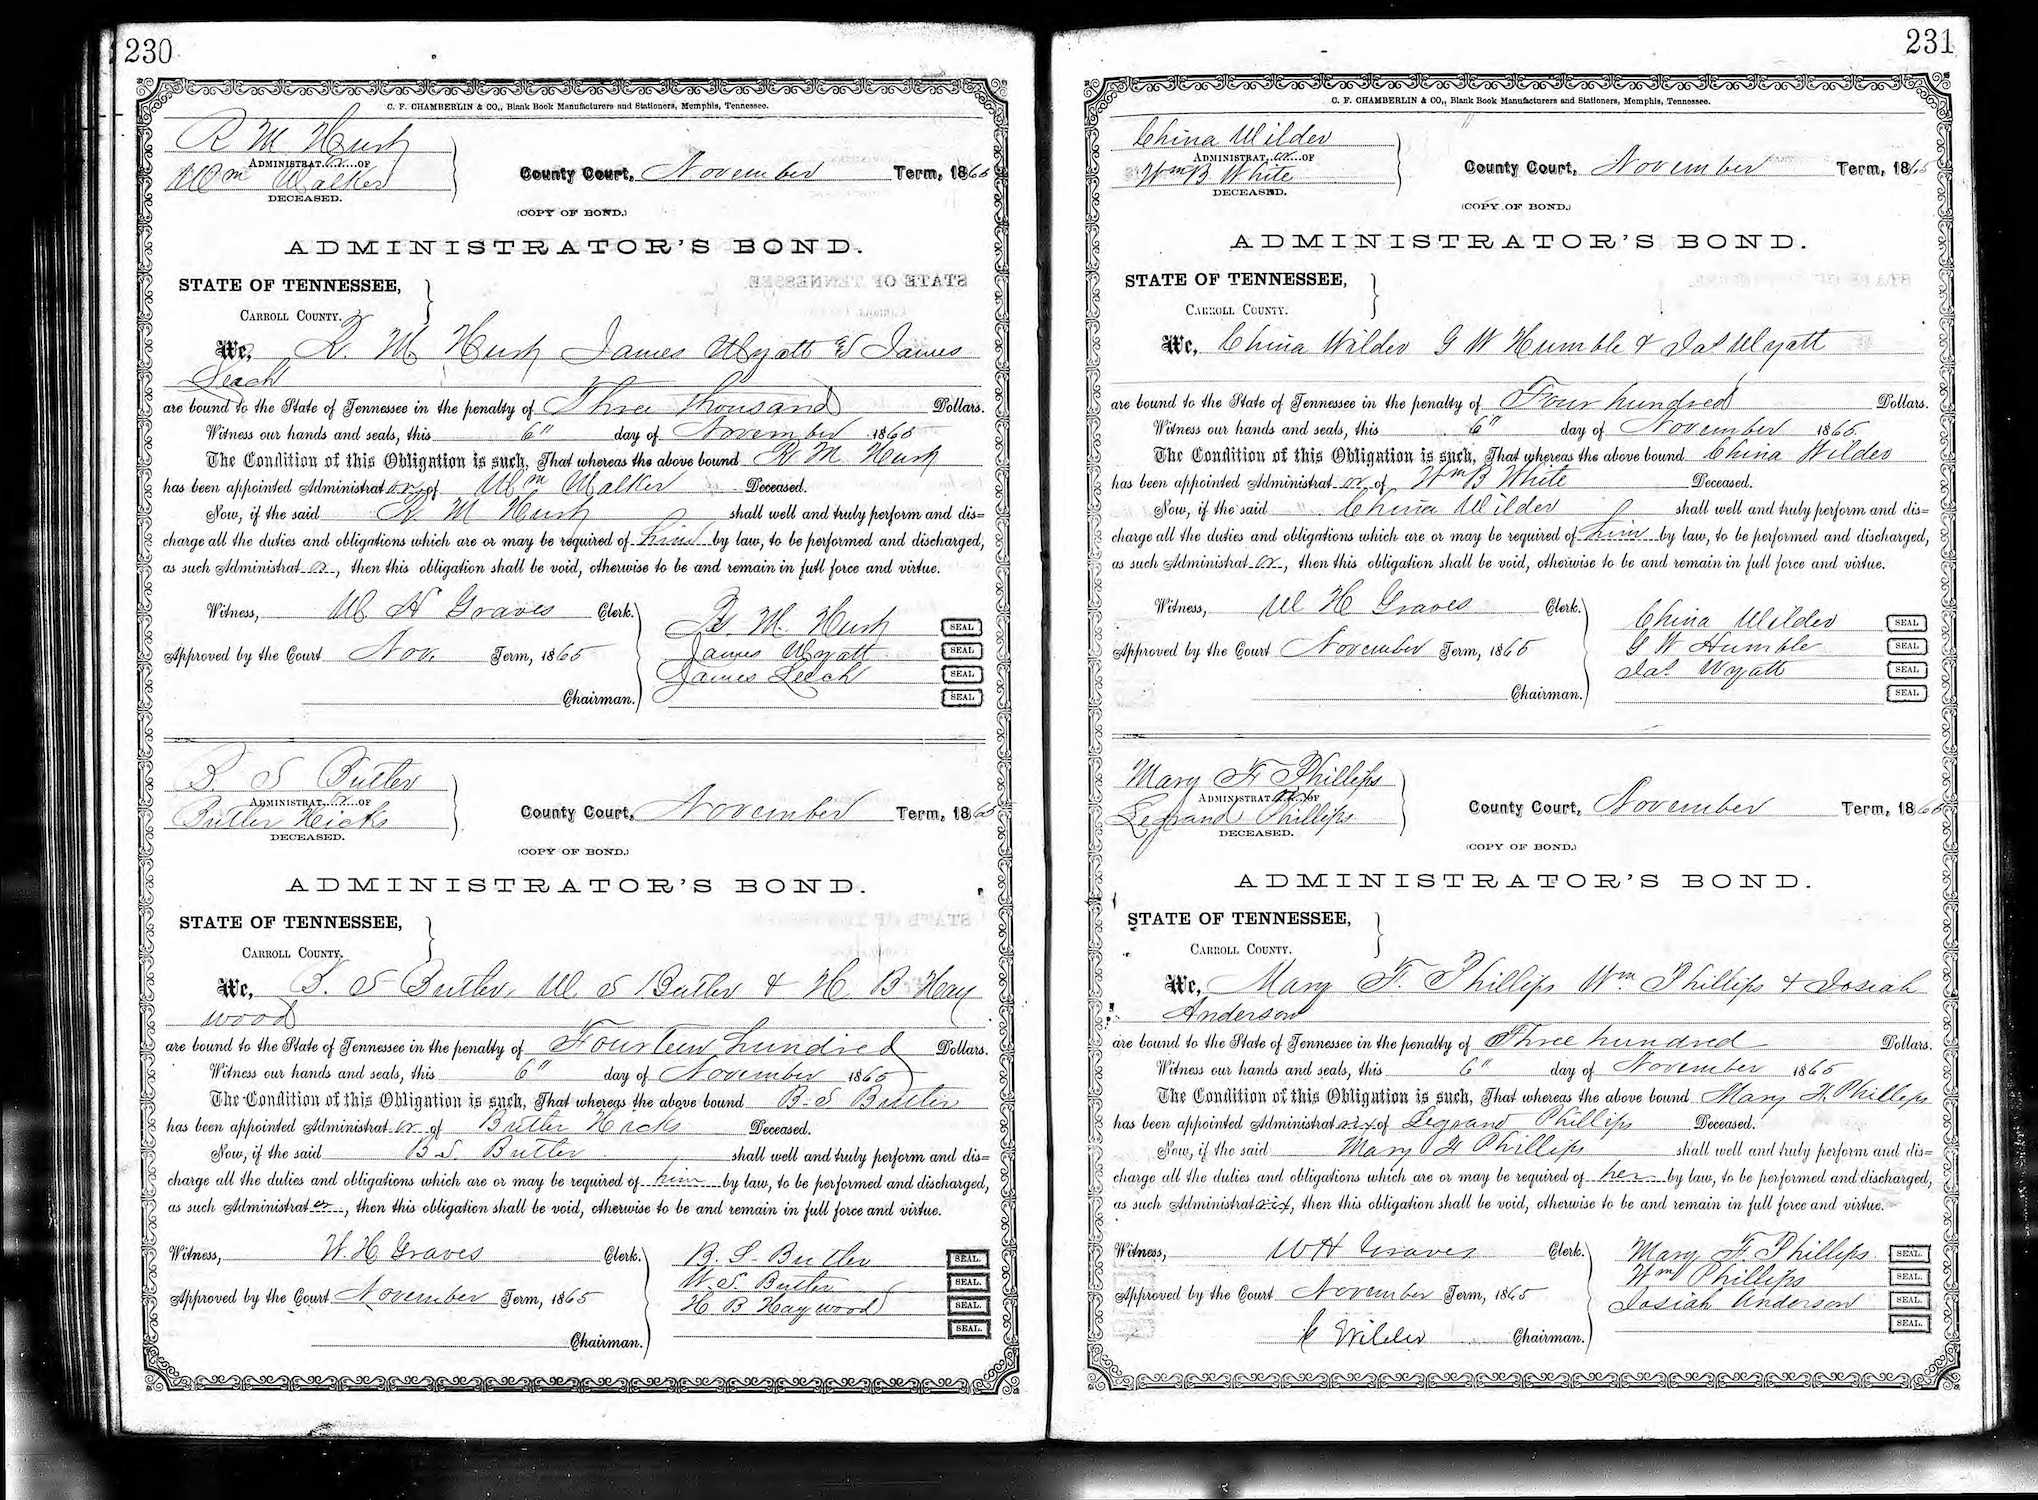 230
C. F. CHAMBERLIN & CO., Blank Book Manufacturers and Stationers, Memphis, Tennessee.
R M Husk
ADMINISTRAT or OF
Wm Walker
DECEASED.
County Court, November Term, 1865
(COPY OF BOND.)
ADMINISTRATOR'S BOND.
STATE OF TENNESSEE,
CARROLL COUNTY.
We, R. M Husk James Wyatt & James
Leach
are bound to the State of Tennessee in the penalty of Three thousand Dollars.
Witness our hands and seals, this 6" day of November 1865
The Condition of this Obligation is such, That whereas the above bound R. M Husk
has been appointed Administrat or of Wm Walker Deceased.
Now, if the said R M Husk shall well and truly perform and dis=
charge all the duties and obligations which are or may be required of him by law, to be performed and discharged,
as such Administrat or, then this obligation shall be void, otherwise to be and remain in full force and virtue.
Witness, W. H Graves Clerk.
Approved by the Court Nov. Term, 1865
Chairman.
R. M. Husk SEAL
James Wyatt SEAL
James Leach SEAL
SEAL
B. S Butler
ADMINISTRAT or OF
Butler Hicks
DECEASED.
County Court, November Term, 1865
(COPY OF BOND.)
ADMINISTRATOR'S BOND.
STATE OF TENNESSEE,
CARROLL COUNTY.
We, B. S Butler, W S Butler & H B Hay
wood
are bound to the State of Tennessee in the penalty of Fourteen hundred Dollars.
Witness our hands and seals, this 6" day of November 1865
The Condition of this Obligation is such, That whereas the above bound B. S Butler
has been appointed Administrat or of Butler Hicks Deceased.
Now, if the said B S. Butler shall well and truly perform and dis=
charge all the duties and obligations which are or may be required of him by law, to be performed and discharged,
as such Administrat or, then this obligation shall be void, otherwise to be and remain in full force and virtue.
Witness, W. H Graves Clerk.
Approved by the Court November Term, 1865
Chairman.
B. S. Butler SEAL.
W. S. Butler SEAL.
H B Haywood SEAL.
SEAL.
231
C. F. CHAMBERLIN & CO., Blank Book Manufacturers and Stationers, Memphis, Tennessee.
China Wilder
ADMINISTRAT or OF
Wm B White
DECEASED.
County Court, November Term, 1865
(COPY OF BOND.)
ADMINISTRATOR'S BOND.
STATE OF TENNESSEE,
CARROLL COUNTY.
We, China Wilder G W Humble & Jas Wyatt
are bound to the State of Tennessee in the penalty of Four hundred Dollars.
Witness our hands and seals, this 6" day of November 1865.
The Condition of this Obligation is such, That whereas the above bound China Wilder
has been appointed Administrat or of Wm B White Deceased.
Now, if the said China Wilder shall well and truly perform and dis=
charge all the duties and obligations which are or may be required of him by law, to be performed and discharged,
as such Administrat or, then this obligation shall be void, otherwise to be and remain in full force and virtue.
Witness, W H Graves Clerk.
Approved by the Court November Term, 1865
Chairman.
China Wilder SEAL
G W Humble SEAL
Jas. Wyatt SEAL
SEAL
Mary F Phillips
ADMINISTRAT rix OF
Legrand Phillips
DECEASED.
County Court, November Term, 1865
(COPY OF BOND.)
ADMINISTRATOR'S BOND.
STATE OF TENNESSEE,
CARROLL COUNTY.
We, Mary F. Phillips Wm. Phillips & Josiah
Anderson
are bound to the State of Tennessee in the penalty of Three hundred Dollars.
Witness our hands and seals, this 6" day of November 1865
The Condition of this Obligation is such, That whereas the above bound Mary F. Phillips
has been appointed Administrat rix of Legrand Phillips Deceased.
Now, if the said Mary F Phillips shall well and truly perform and dis=
charge all the duties and obligations which are or may be required of her by law, to be performed and discharged,
as such Administrat rix, then this obligation shall be void, otherwise to be and remain in full force and virtue.
Witness, W H Graves Clerk.
Approved by the Court November Term, 1865
C Wilder Chairman.
Mary F. Phillips SEAL.
Wm Phillips SEAL.
Josiah Anderson SEAL.
SEAL.